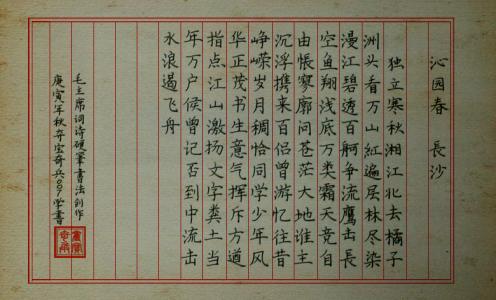 沁园春 長沙
独立寒秋湘江北去橘子
洲头看万山紅遍层林尽染
漫江碧透百舸争流鹰击長
空鱼翔浅底万类霜天竞自
由怅寥廓问苍茫大地谁主
沉浮携来百侣曾游忆往昔
峥嵘岁月稠恰同学少年风
华正茂书生意气挥斥方遒
指点江山激扬文字粪土当
年万户侯曾记否到中流击
水浪遏飞舟
毛主席词诗硬筆書法创作
庚寅年秋弃宝奇兵007学書